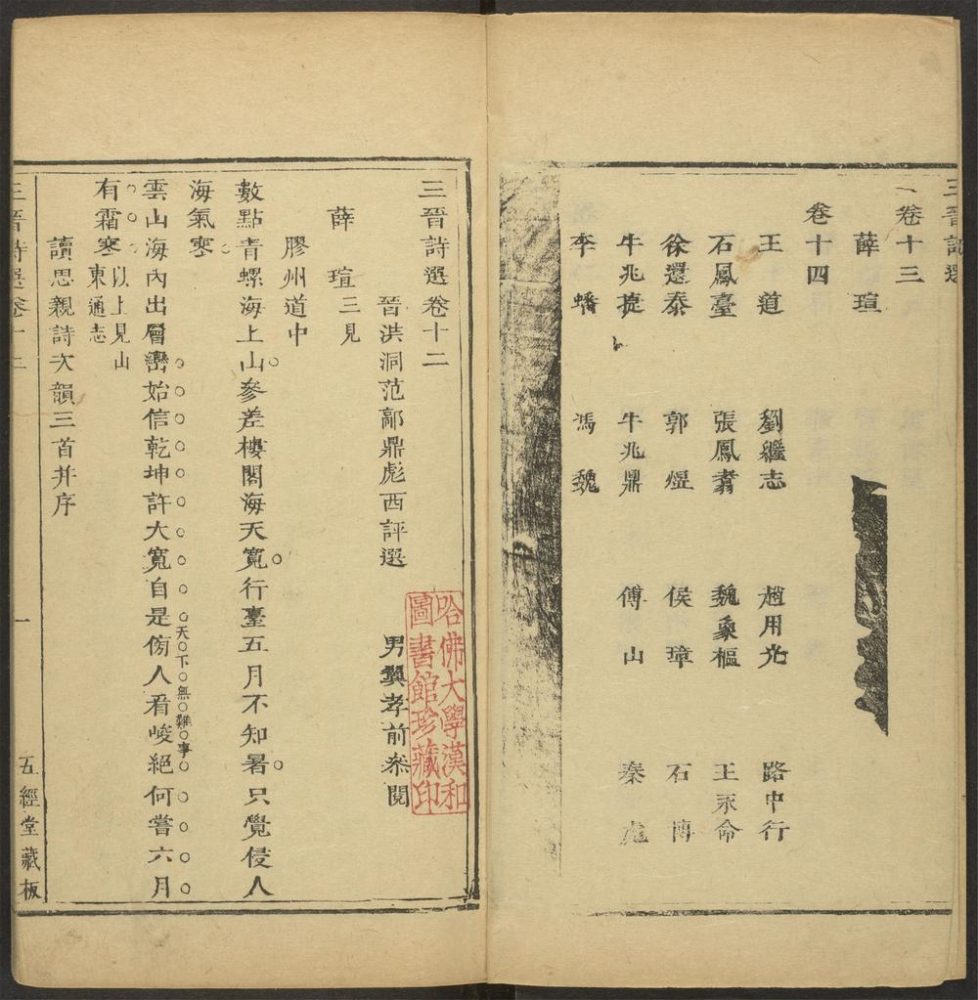 三晉詩選
卷十三
薛瑄
卷十四
王道 劉繼志 趙用光 路中行
石鳳臺 張鳳翥 魏象樞 王永命
徐還泰 郭熴 侯璋 石博
牛兆捷 牛兆鼎 傅山 秦
李蟠 馮魏
三晉詩選卷十二
晉洪洞范鄗鼎彪西評選 男翼孝前叅閱
薛瑄三見
膠州道中
數點青螺海上山參差樓閣海天寬行臺五月不知暑只覺侵人
海氣寒
雲山海內出層巒始信乾坤許大寬自是傍人看峻絕何嘗六月
天下無難事
有霜寒以上見山東通志
讀思親詩次韻三首并序
三晉詩選卷十二
一
五經堂藏板
哈佛大學漢和
圖書館珍藏印